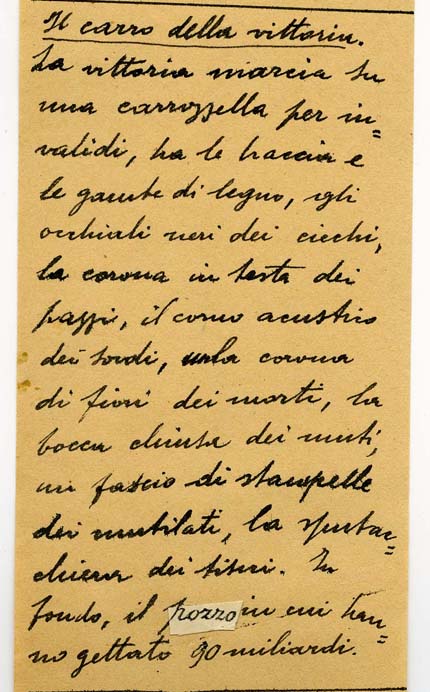 Il carro della vittoria.
La vittoria marcia su
una carrozzella per in=
validi, ha le braccia e
le gambe di legno, gli
occhiali neri dei ciechi,
la corona in testa dei
pazzi, il corno acustico
dei sordi, la corona
di fiori dei morti, la
bocca chiusa dei muti,
un fascio di stampelle
dei mutilati, la sputac=
chiera dei tisici. In
fondo, il pozzo in cui han=
no gettato 90 miliardi.